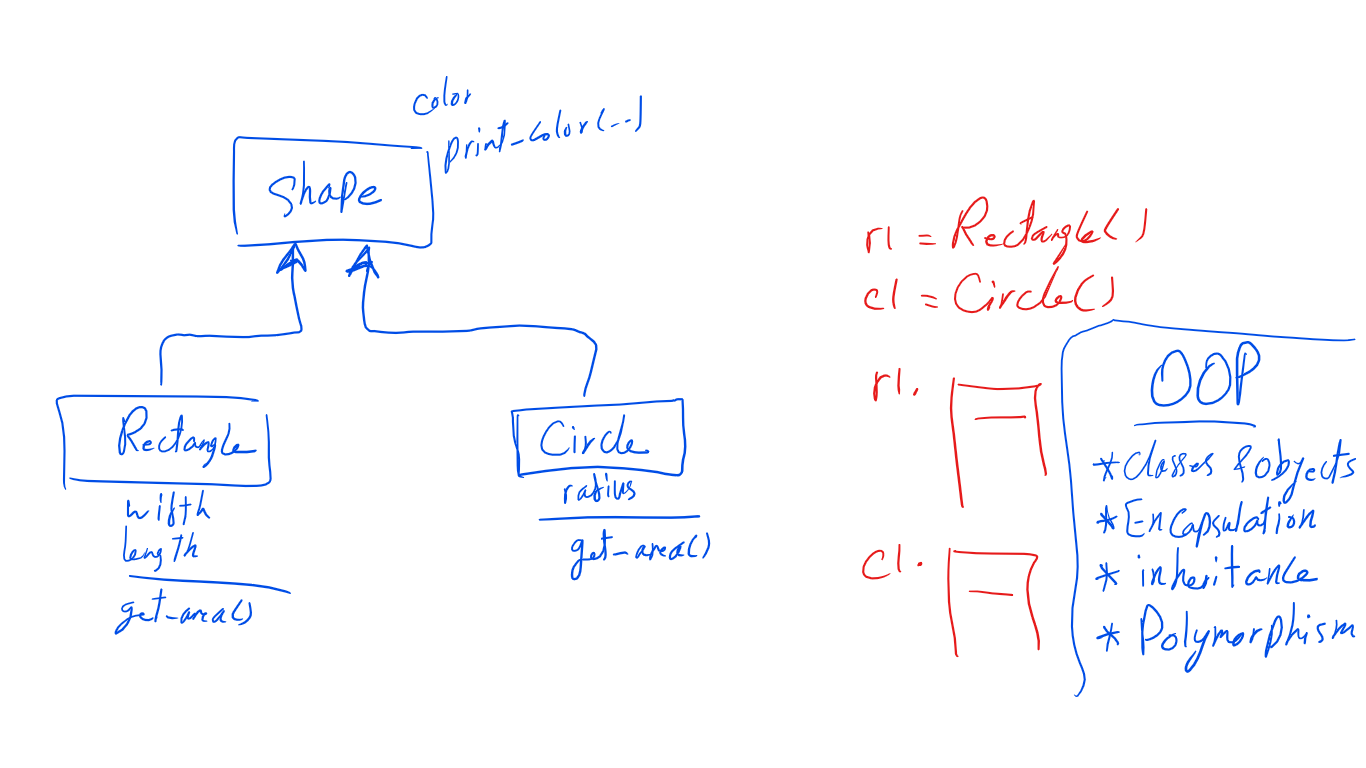 color
print_color(--)
Shape
Rectangle
width
length
get_area()
Circle
radius
get_area()
r1 = Rectangle()
c1 = Circle()
r1.
c1.
OOP
*Classes & objects
*Encapsulation
* inheritance
* Polymorphism